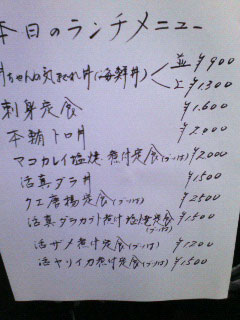 本日のランチメニュー
ちゃんの気まぐれ丼(海鮮丼) 並 ¥900
上 ¥1,300
刺身定食 ¥1,600
本鮪トロ丼 ¥2000
マコカレイ塩焼 煮付定食(ブツ付) ¥2000
活真ダラ丼 ¥1500
クエ唐揚定食(ブツ付) ¥2500
活真ダラカブト煮付 塩焼定食(ブツ付) ¥1500
活ザメ煮付定食(ブツ付) ¥1200
活ヤリイカ煮付定食(ブツ付) ¥1500